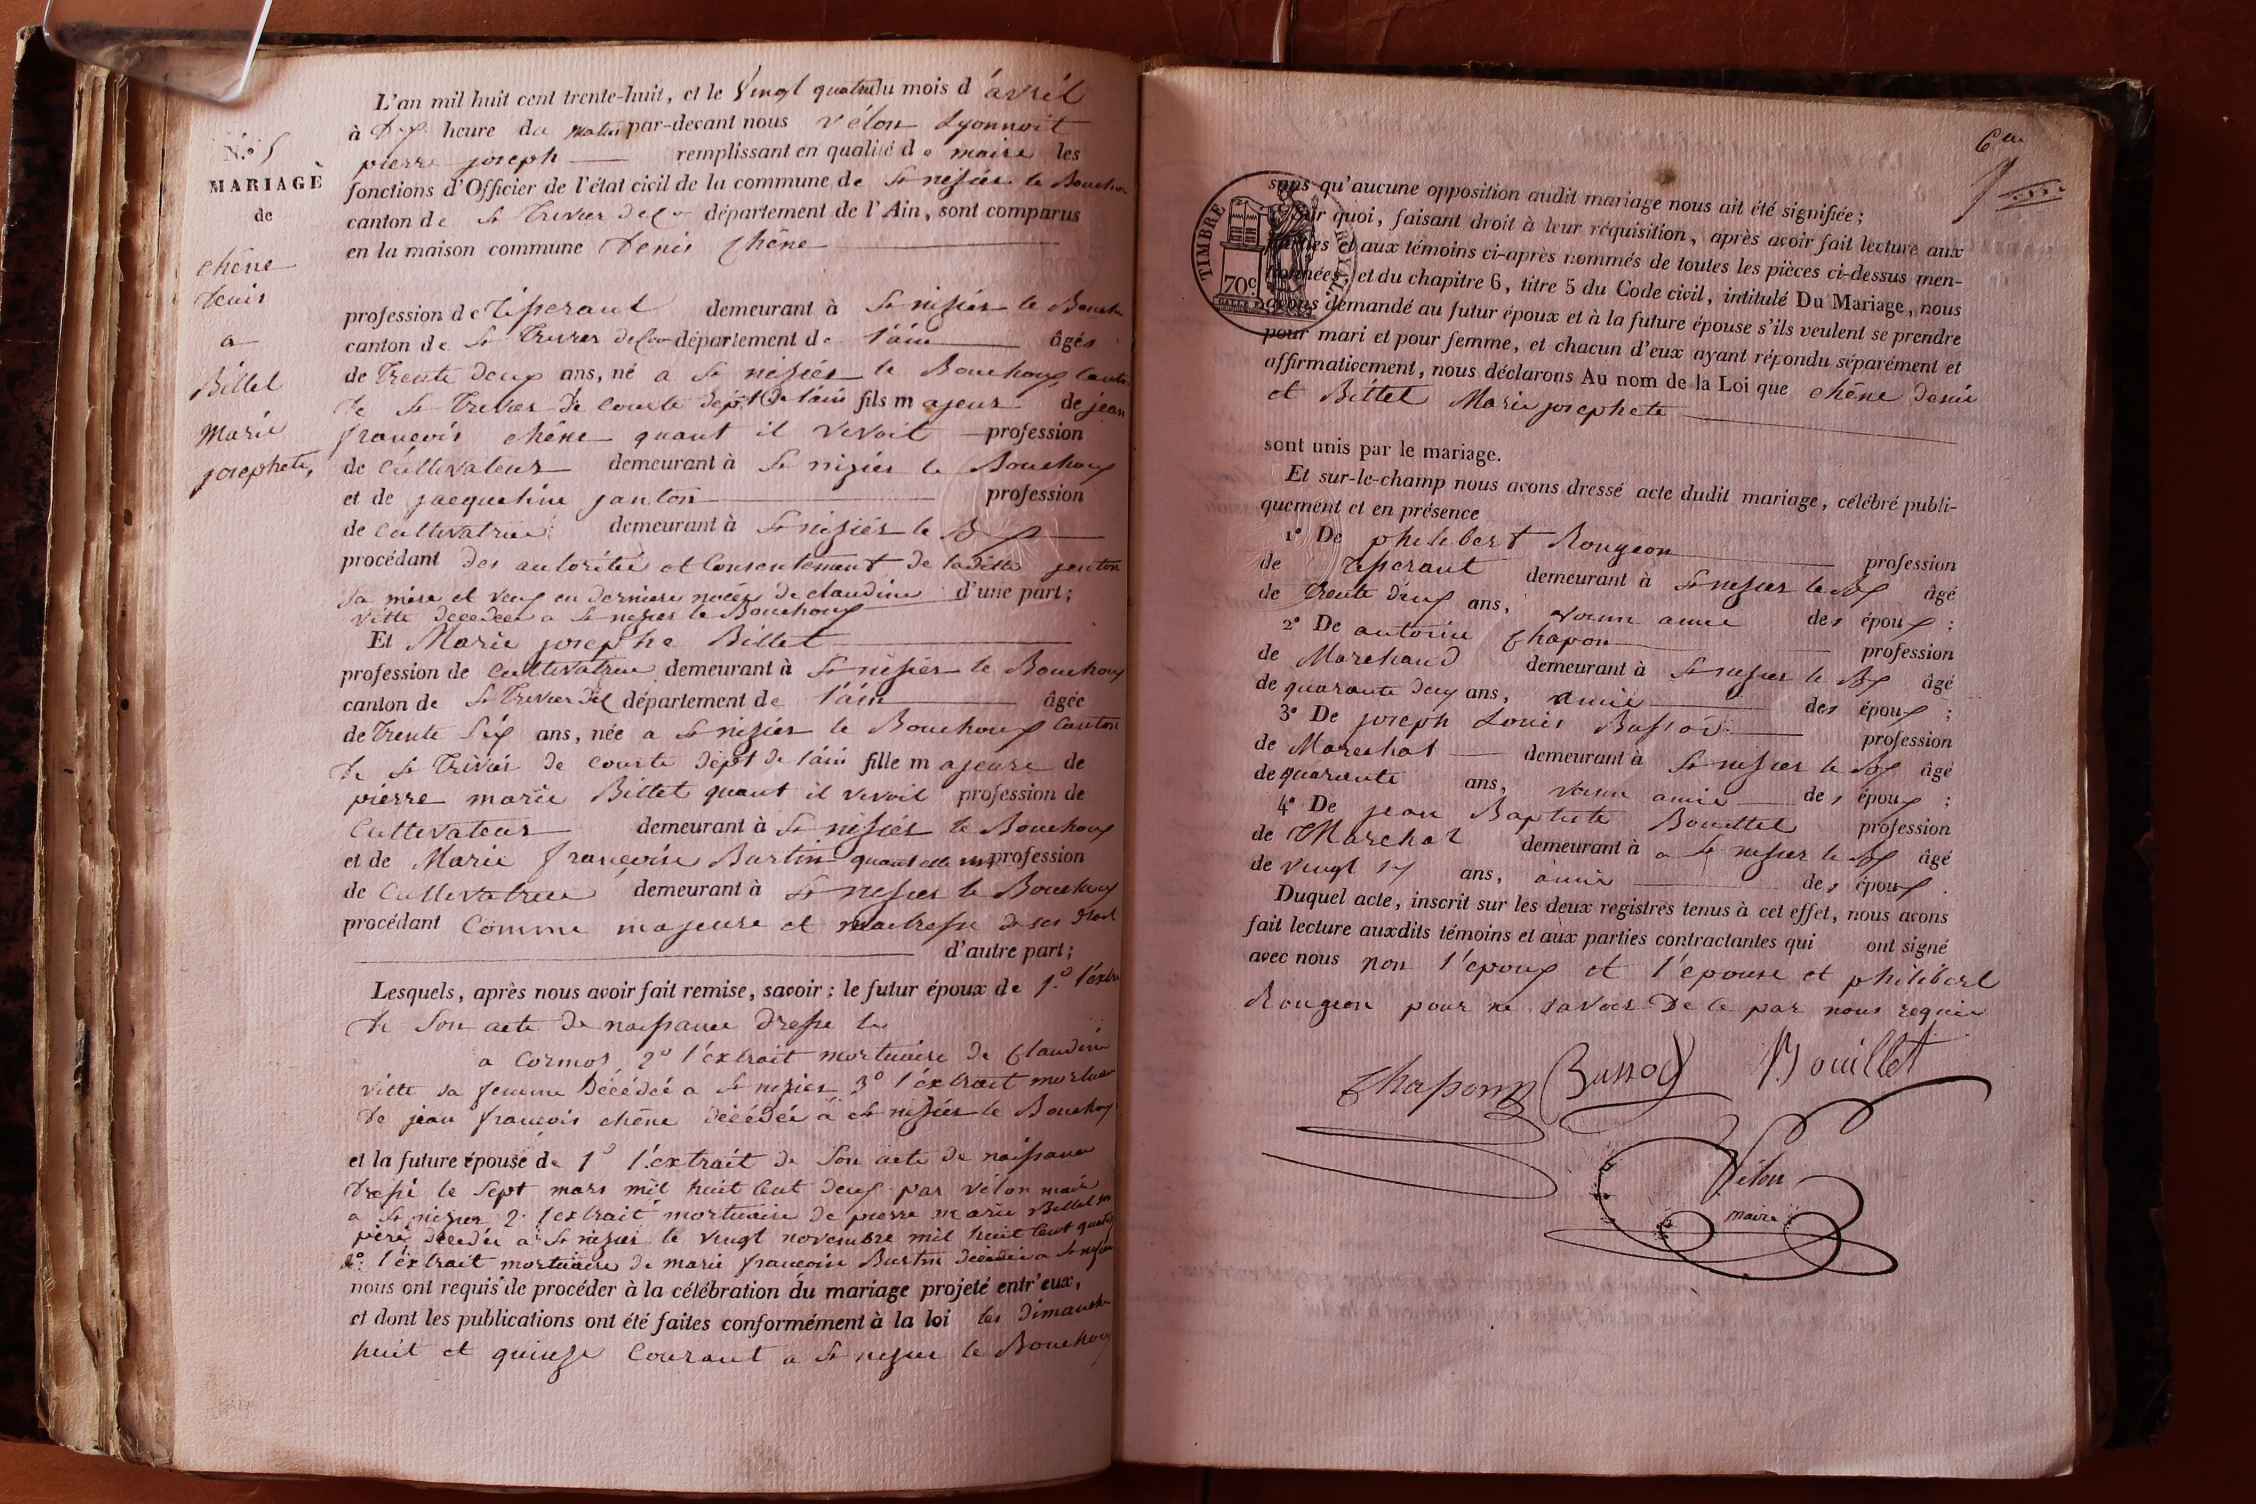 N.° 5
MARIAGE
de
chêne
Denis
a
Billet
Marie
josephete,
L'an mil huit cent trente-huit, et le Vingt quatre du mois d'avril
à Dix heure du matin par-devant nous vélon Lyonnoit
pierre joseph remplissant en qualité de maire les
fonctions d'Officier de l'état civil de la commune de St nisier le Bouchoux
canton de St Trivier de C département de l'Ain, sont comparus
en la maison commune Denis Chêne
profession de Tisserant demeurant à St nisier le Bouch
canton de St Trivier de C département de l'ain âgés
de Trente deux ans, né a St nisier le Bouchoux Canton
de St Trivier de Courte dépt de l'ain fils majeur de jean
françois chêne quant il vivoit profession
de Cultivateur demeurant à St nizier le Bouchoux
et de jacqueline janton profession
de Cultivatrice demeurant à St nizier le Bx
procédant des autorité et Consentement de ladite janton
sa mère et veuf en derniere noces de claudine d'une part;
vitte décédée a St nizier le Bouchoux
Et Marie josephe Billet
profession de Cultivatrice demeurant à St nisier le Bouchoux
canton de St Trivier de C département de l'ain âgée
de Trente Six ans, née a St nizier le Bouchoux Canton
de St Trivier de Courte dépt de l'ain fille majeure de
pierre marie Billet quant il vivoit profession de
Cultivateur demeurant à St nisier le Bouchoux
et de Marie françoise Burtin quant elle profession
de Cultivatrice demeurant à St nisier le Bouchoux
procédant Comme majeure et maitresse de ses droit
d'autre part;
Lesquels, après nous avoir fait remise, savoir : le futur époux de 1.° l'extra
de Son acte de naissance Dressé le
a Cormos, 2° l'extrait mortuaire de Claudine
vitte sa femme Décédée a St nizier 3° l'extrait mortuair
de jean françois chêne décédé à St nizier le Bouchoux
et la future épouse de 1° l'extrait de Son acte de naissance
Dressé le Sept mars mil huit Cent deux par vélon maire
a St nizier 2° l'extrait mortuaire de pierre marie Billet son
père décédé a St nizier le vingt novembre mil huit Cent
l'extrait mortuaire de marie françoise Burtin décédée a St nizier
nous ont requis de procéder à la célébration du mariage projeté entr'eux,
et dont les publications ont été faites conformément à la loi les dimanche
huit et quinze Courant a St nizier le Bouchoux
6me
TIMBRE ROYAL
70c
sans qu'aucune opposition audit mariage nous ait été signifiée ;
Pour quoi, faisant droit à leur réquisition, après avoir fait lecture aux
parties et aux témoins ci-après nommés de toutes les pièces ci-dessus men-
tionnées, et du chapitre 6, titre 5 du Code civil, intitulé Du Mariage, nous
avons demandé au futur époux et à la future épouse s'ils veulent se prendre
pour mari et pour femme, et chacun d'eux ayant répondu séparément et
affirmativement, nous déclarons Au nom de la Loi que chêne denis
et Billet Marie josephete
sont unis par le mariage.
Et sur-le-champ nous avons dressé acte dudit mariage, célébré publi-
quement et en présence
1° De philibert Rongeon profession
de Tisserant demeurant à St nisier le Bx âgé
de Trente deux ans, voisin amie des époux ;
2° De antoine Chapon profession
de Marchand demeurant à St nisier le Bx âgé
de quarante deux ans, amie des époux ;
3° De joseph Louis Bussod profession
de Marechal demeurant à St nisier le Bx âgé
de quarante ans, voisin amie des époux ;
4° De jean Baptiste Bouillet profession
de Marechal demeurant à a St nisier le Bx âgé
de vingt ans, amie des époux.
Duquel acte, inscrit sur les deux registres tenus à cet effet, nous avons
fait lecture auxdits témoins et aux parties contractantes qui ont signé
avec nous non l'époux et l'epouse et philibert
Rongeon pour ne savoir De ce par nous requis
Chaponn Bussod Bouillet
Vélon
maire